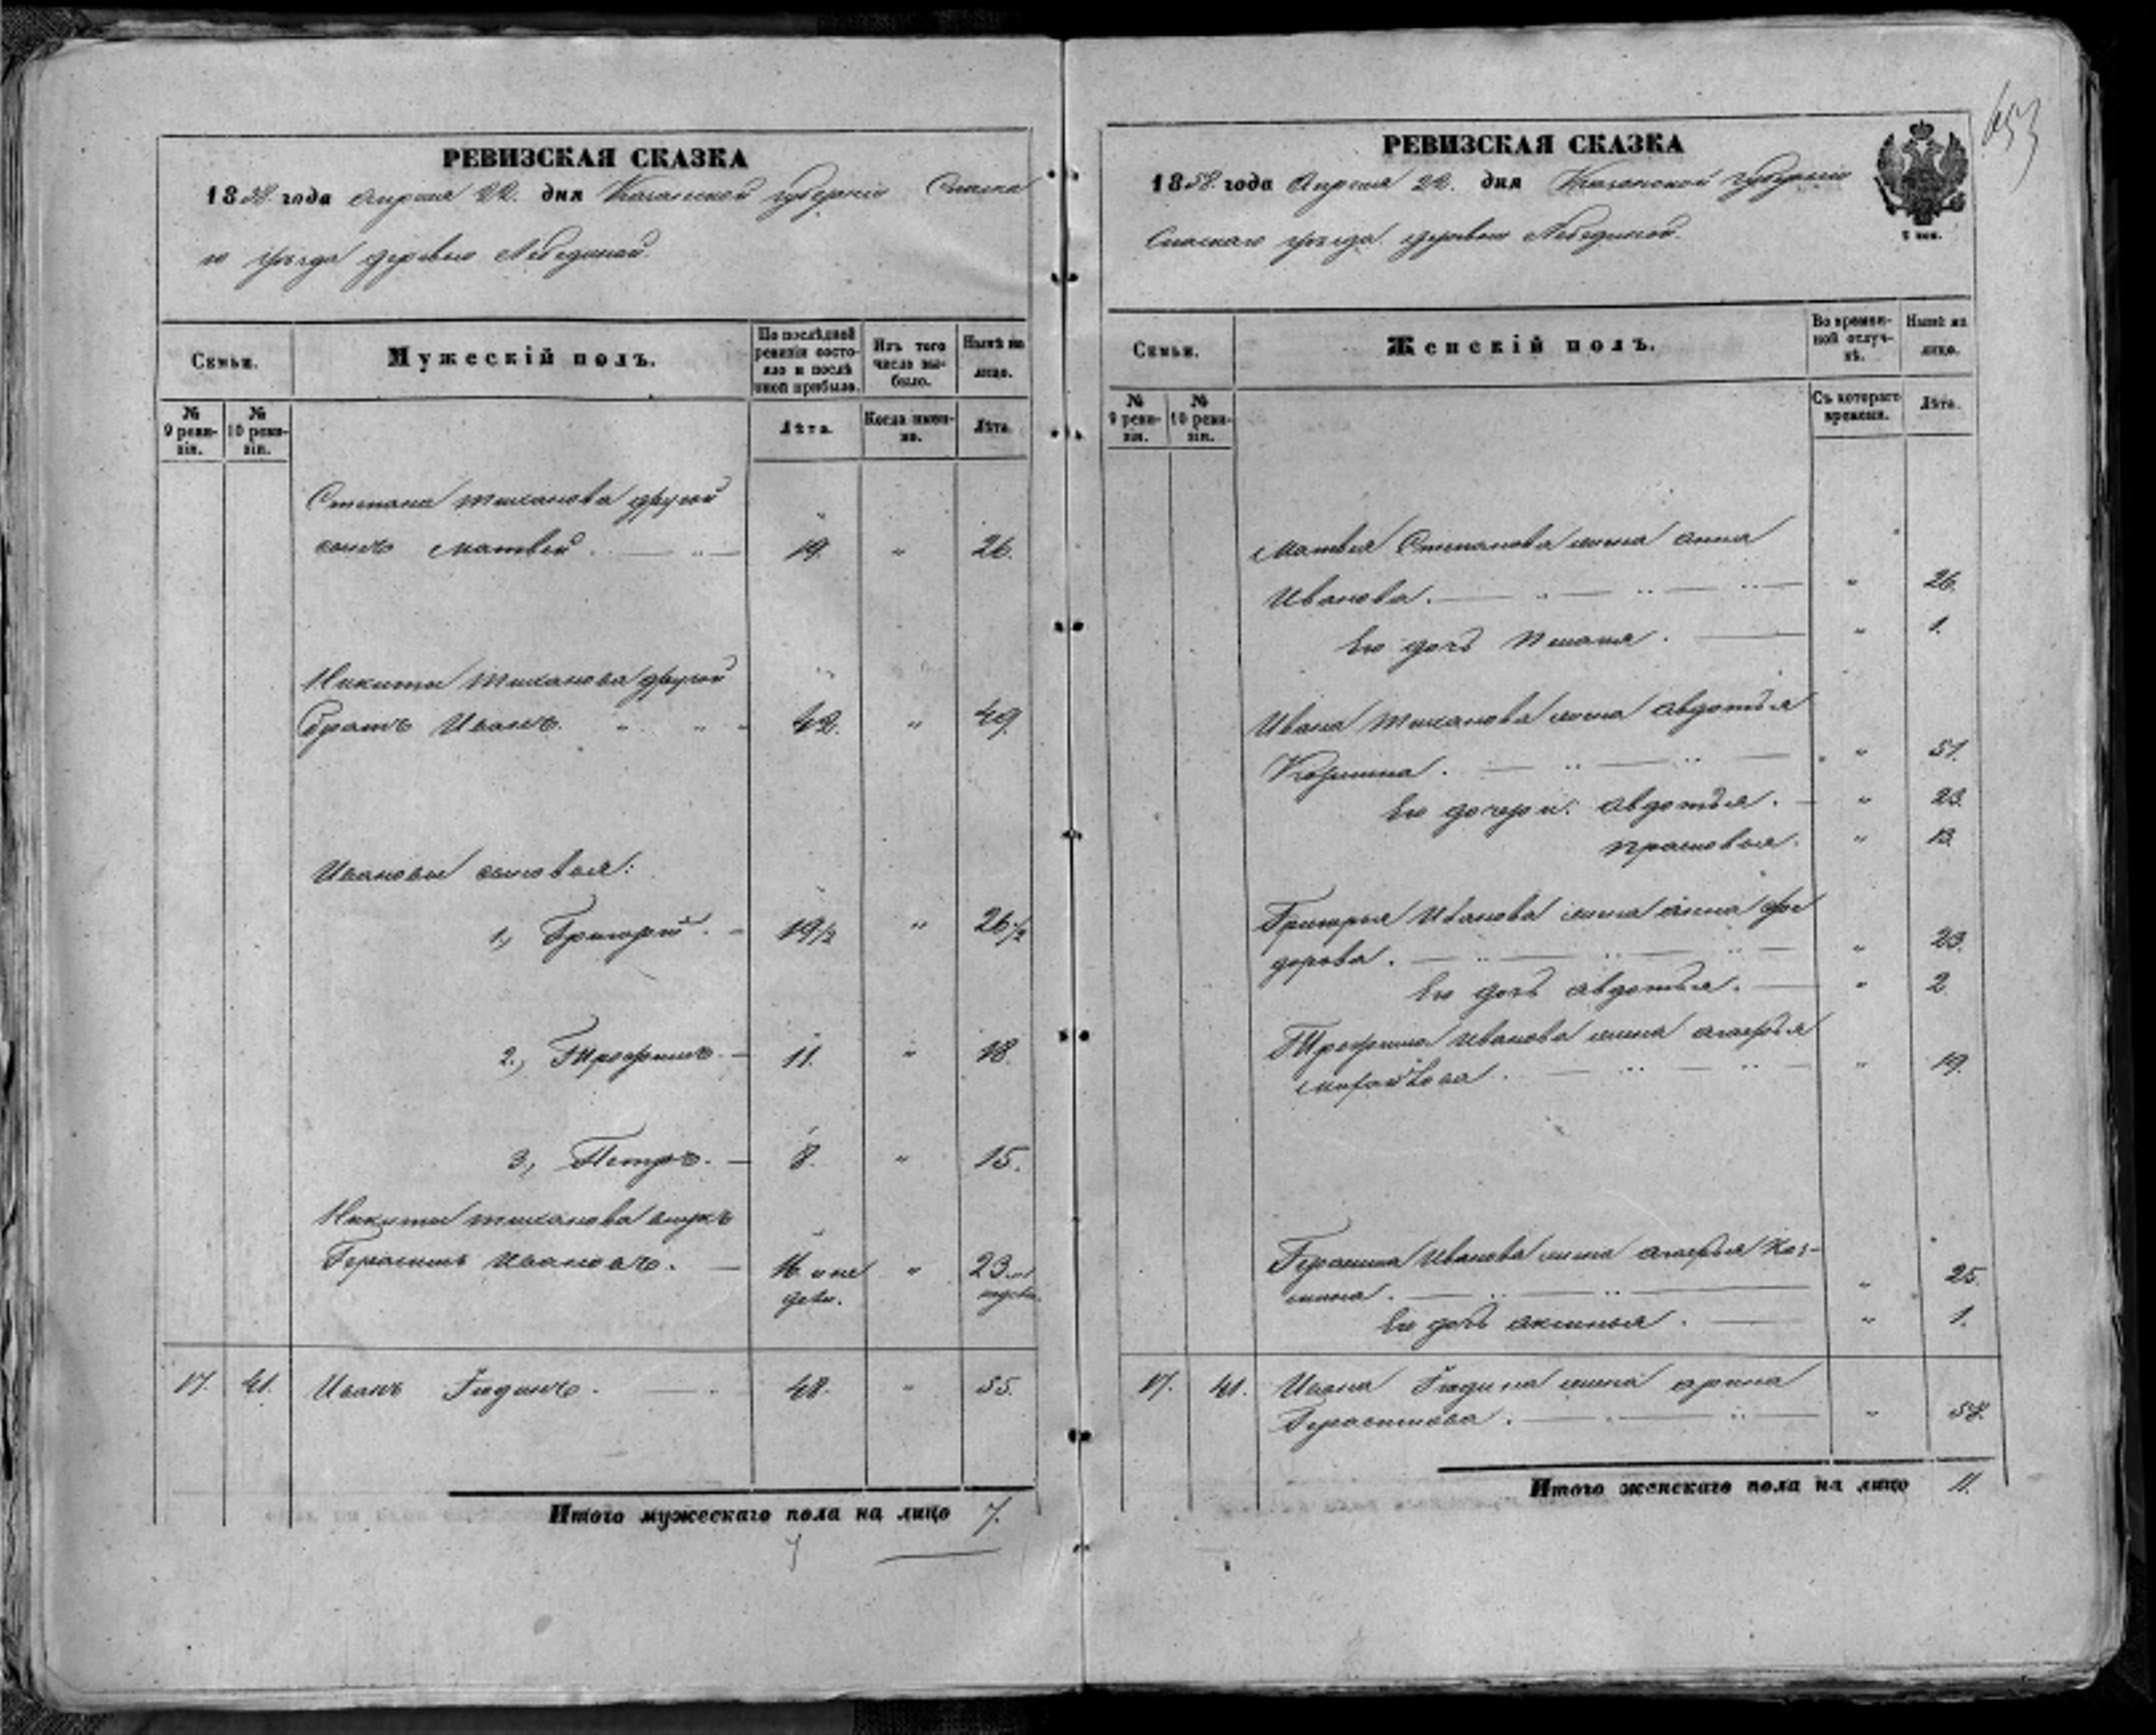 РЕВИЗСКАЯ СКАЗКА
1858 года Апреля 22. дня Казанской губернiи Спаска
го уѣзда деревни Лебединой.
Семьи.
Мужескiй полъ.
По послѣдней ревизiи состояло и послѣ оной прибыло.
Изъ того числа выбыло.
Нынѣ на лицо.
№ 9 ревизiи.
№ 10 ревизiи.
Лѣта.
Когда именно.
Лѣта.
Степана Тиханова другой
сынъ Матвей. 19. " 26.
Никиты Тиханова другой
братъ Иванъ. 42. " 49.
Ивановы сыновья:
1, Григорiй. 19½ " 26½
2., Трофимъ. 11. " 18.
3, Петръ. 8. " 15.
Никиты Тиханова внукъ
Герасимъ Ивановъ. 16 " 23
17. 41. Иванъ 48. " 55.
Итого мужескаго пола на лицо 7.
653
РЕВИЗСКАЯ СКАЗКА
1858. года Апреля 22. дня Казанской губернiи
Спаскаго уѣзда деревни Лебединой.
Семьи.
Женскiй полъ.
Во временной отлучкѣ.
Нынѣ на лицо.
№ 9 ревизiи.
№ 10 ревизiи.
Съ котораго времени.
Лѣта.
Матвея Степанова жена Анна
Иванова. " 26.
Его дочь " 1.
Ивана Тиханова жена Авдотья
" 51.
Его дочери: Авдотья. " 23.
Прасковья. " 13.
Григорья Иванова жена Анна Фе
дорова. " 23.
Его дочь Авдотья. " 2.
Трофима Иванова жена Агафья
" 19.
Герасима Иванова жена Агафья Коз-
мина. " 25.
Его дочь Аксинья. " 1.
17. 41. Ивана жена Арина
Герасимова. " 58.
Итого женскаго пола на лицо 11.